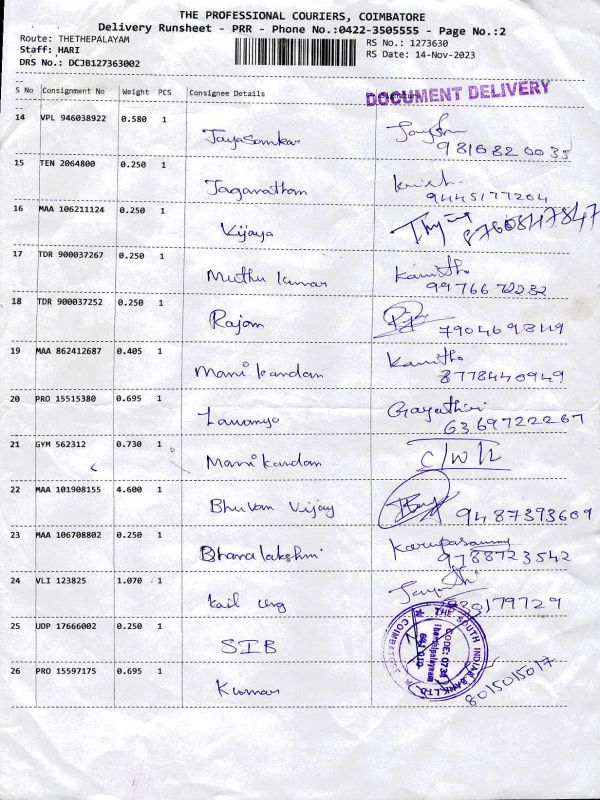 THE PROFESSIONAL COURIERS, COIMBATORE
Delivery Runsheet - PRR - Phone No.:0422-3505555 - Page No.:2
Route: THETHEPALAYAM
RS No.: 1273630
Staff: HARI
RS Date: 14-Nov-2023
DRS No.: DCJB127363002
S No Consignment No Weight PCS Consignee Details Signature
DOCUMENT DELIVERY
14 VPL 946038922 0.580 1
Jayasankar 9816820035
15 TEN 2064800 0.250 1
Jaganathan 9445177204
16 MAA 106211124 0.250 1
Vijaya 8760847847
17 TDR 900037267 0.250 1
Muthu Kumar Kavitha
9976672232
18 TDR 900037252 0.250 1
Rajam
19 MAA 862412687 0.405 1
Manikandan Kavitha
8778440949
20 PRO 15515380 0.695 1
Lavanya Gayathiri
6369722267
21 GYM 562312 0.730 1
Manikandan
22 MAA 101908155 4.600 1
Bhuvan Vijay 9487393609
23 MAA 106708802 0.250 1
Bhanalakshmi Karupasamy
9788723542
24 VLI 123825 1.070 1
25 UDP 17666002 0.250 1
SIB
THE SOUTH INDIAN BANK LTD.
COIMBATORE
26 PRO 15597175 0.695 1
Kumar 8015015017